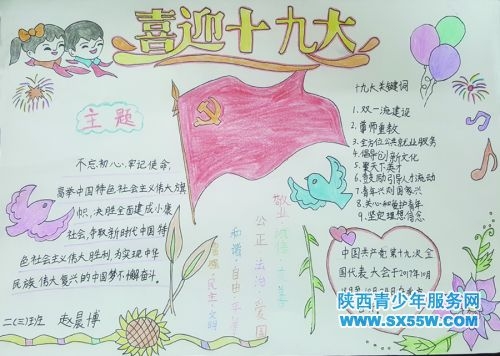 喜迎十九大
主题
不忘初心,牢记使命,
高举中国特色社会主义伟大旗
帜,决胜全面建成小康
社会,夺取新时代中国特
色社会主义伟大胜利,为实现中华
民族伟大复兴的中国梦不懈奋斗。
二(三)班 赵晨博
十九大关键词
1.双一流建设
2.尊师重教
3.全方位公共就业服务
4.倡导创新文化
5.聚天下英才
6.鼓励引导人才流动
7.青年兴则国家兴
8.关心和爱护青年
9.坚定理想信念
富强民主文明
和谐自由平等
公正法治爱国
敬业诚信友善
中国共产党第十九次全
国代表大会于2017年10月
陕西青少年服务网
www.sx55w.com